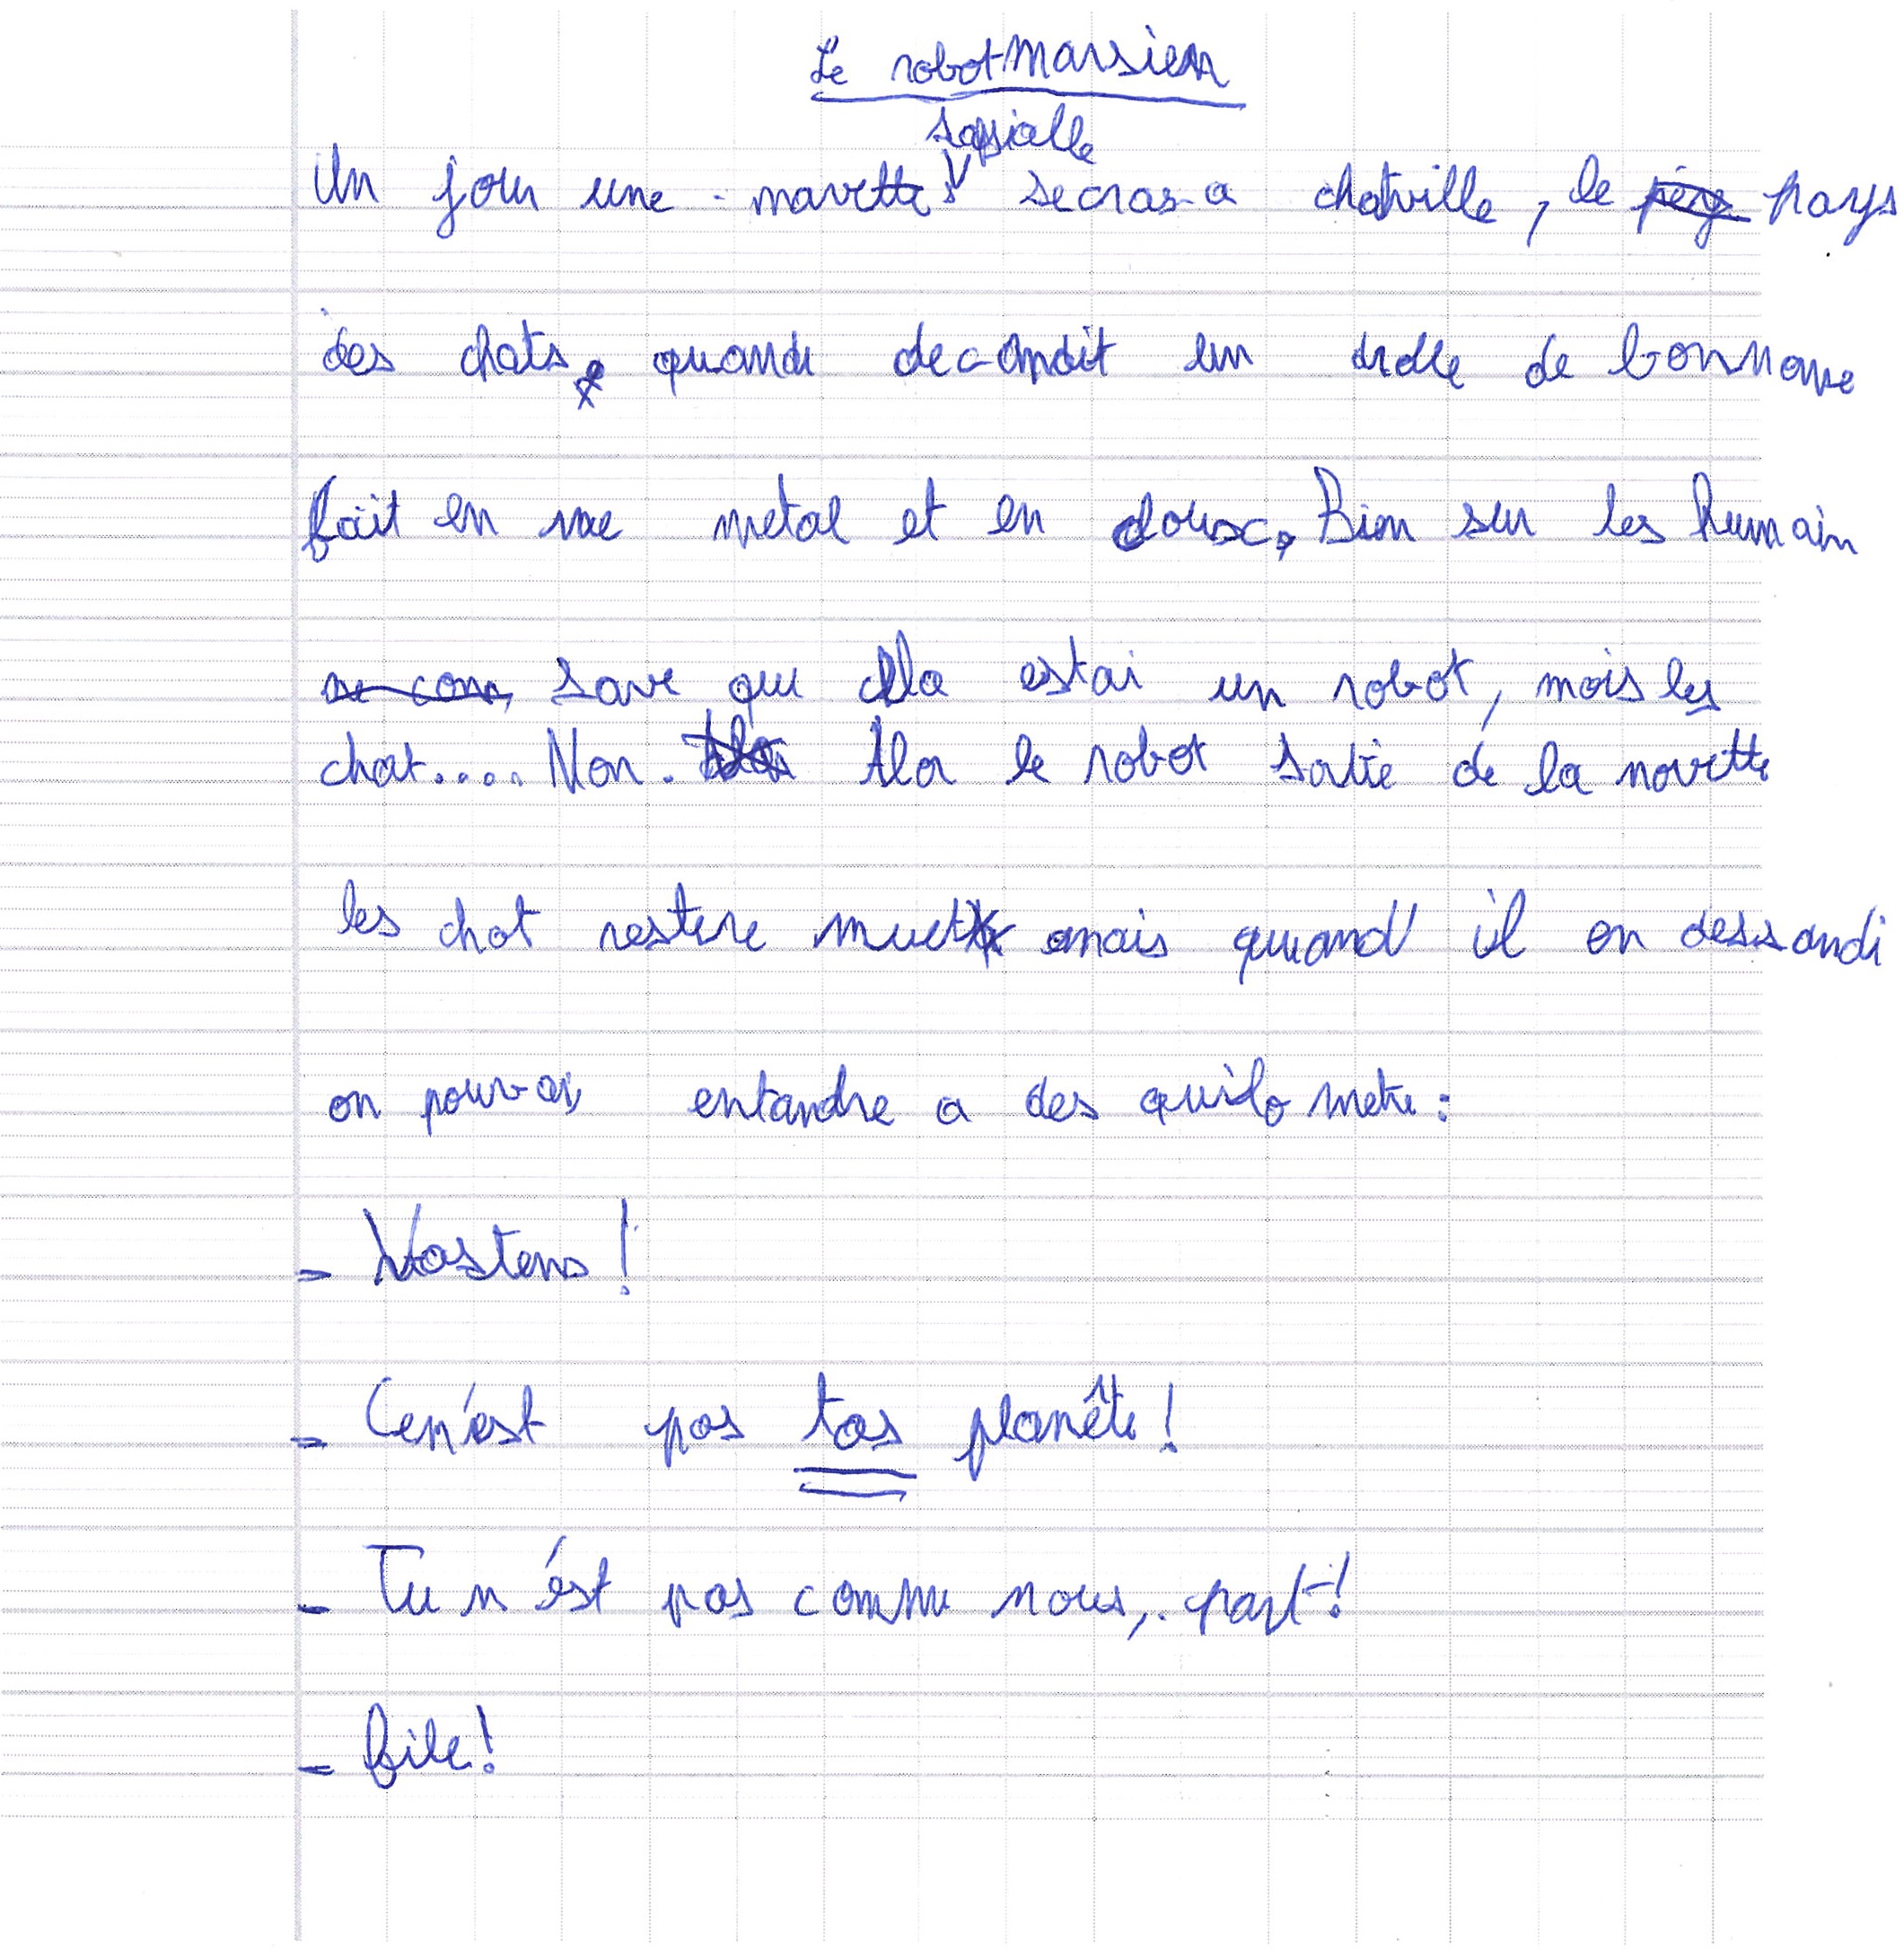 Le robot Marsien
sapsialle
Un jour une navette secras a chatville, le pays
des chats, quande decandit un drolle de bonnome
fait en metal et en clous. Bien sur les humain
save que cela estai un robot, mais les
chat.... Non. Alor le robot sortie de la navette
les chat restere muet mais quand il en dessandi
on pouvai entandre a des quilo metre :
- Vas ten !
- Ce n'est pas tas planête !
- Tu n'ést pas comme nous, part !
- file !